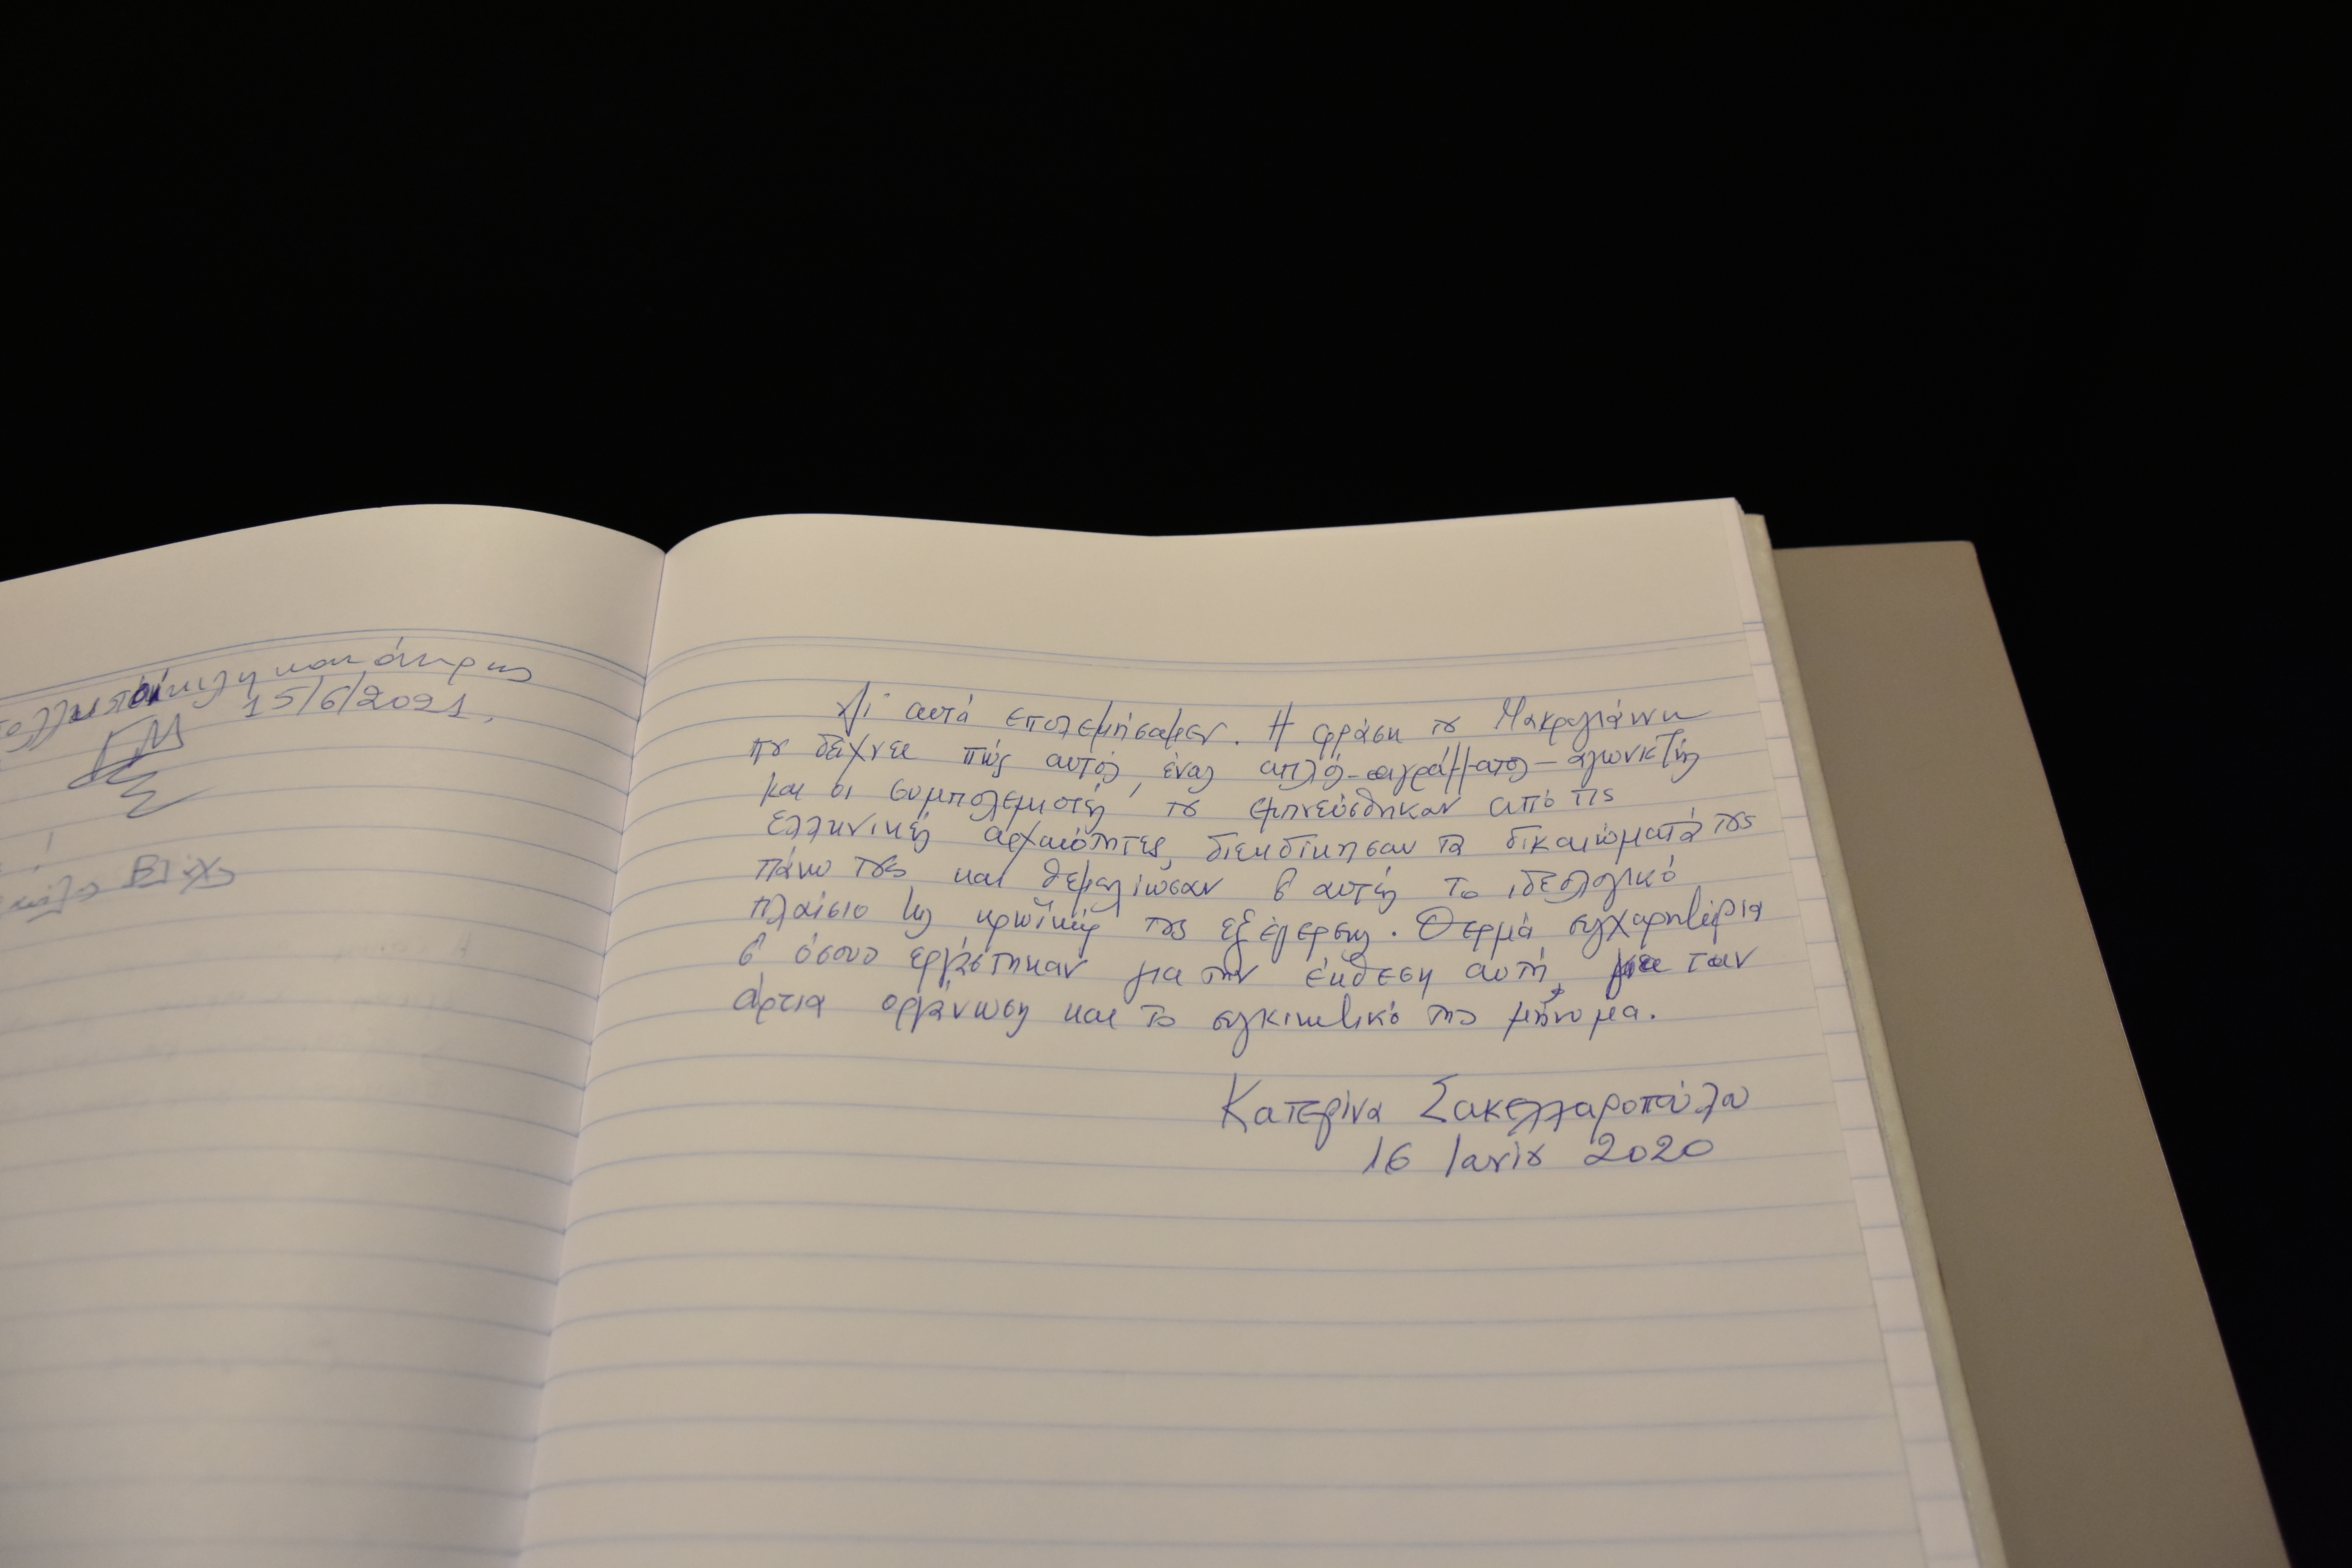 και άκρως
15/6/2021.
Γι' αυτά επολεμήσαμεν. Η φράση του Μακρυγιάννη
που δείχνει πώς αυτός, ένας απλός - αγράμματος - αγωνιστής
και οι συμπολεμιστές του εμπνεύσθηκαν από τις
ελληνικές αρχαιότητες, διεκδίκησαν τα δικαιώματά τους
πάνω τους και θεμελίωσαν σ' αυτές το ιδεολογικό
πλαίσιο της ηρωϊκής τους εξέγερσης. Θερμά συγχαρητήρια
σ' όσους εργάστηκαν για την έκθεση αυτή, για την
άρτια οργάνωση και το συγκινητικό της μήνυμα.
Κατερίνα Σακελλαροπούλου
16 Ιουνίου 2020